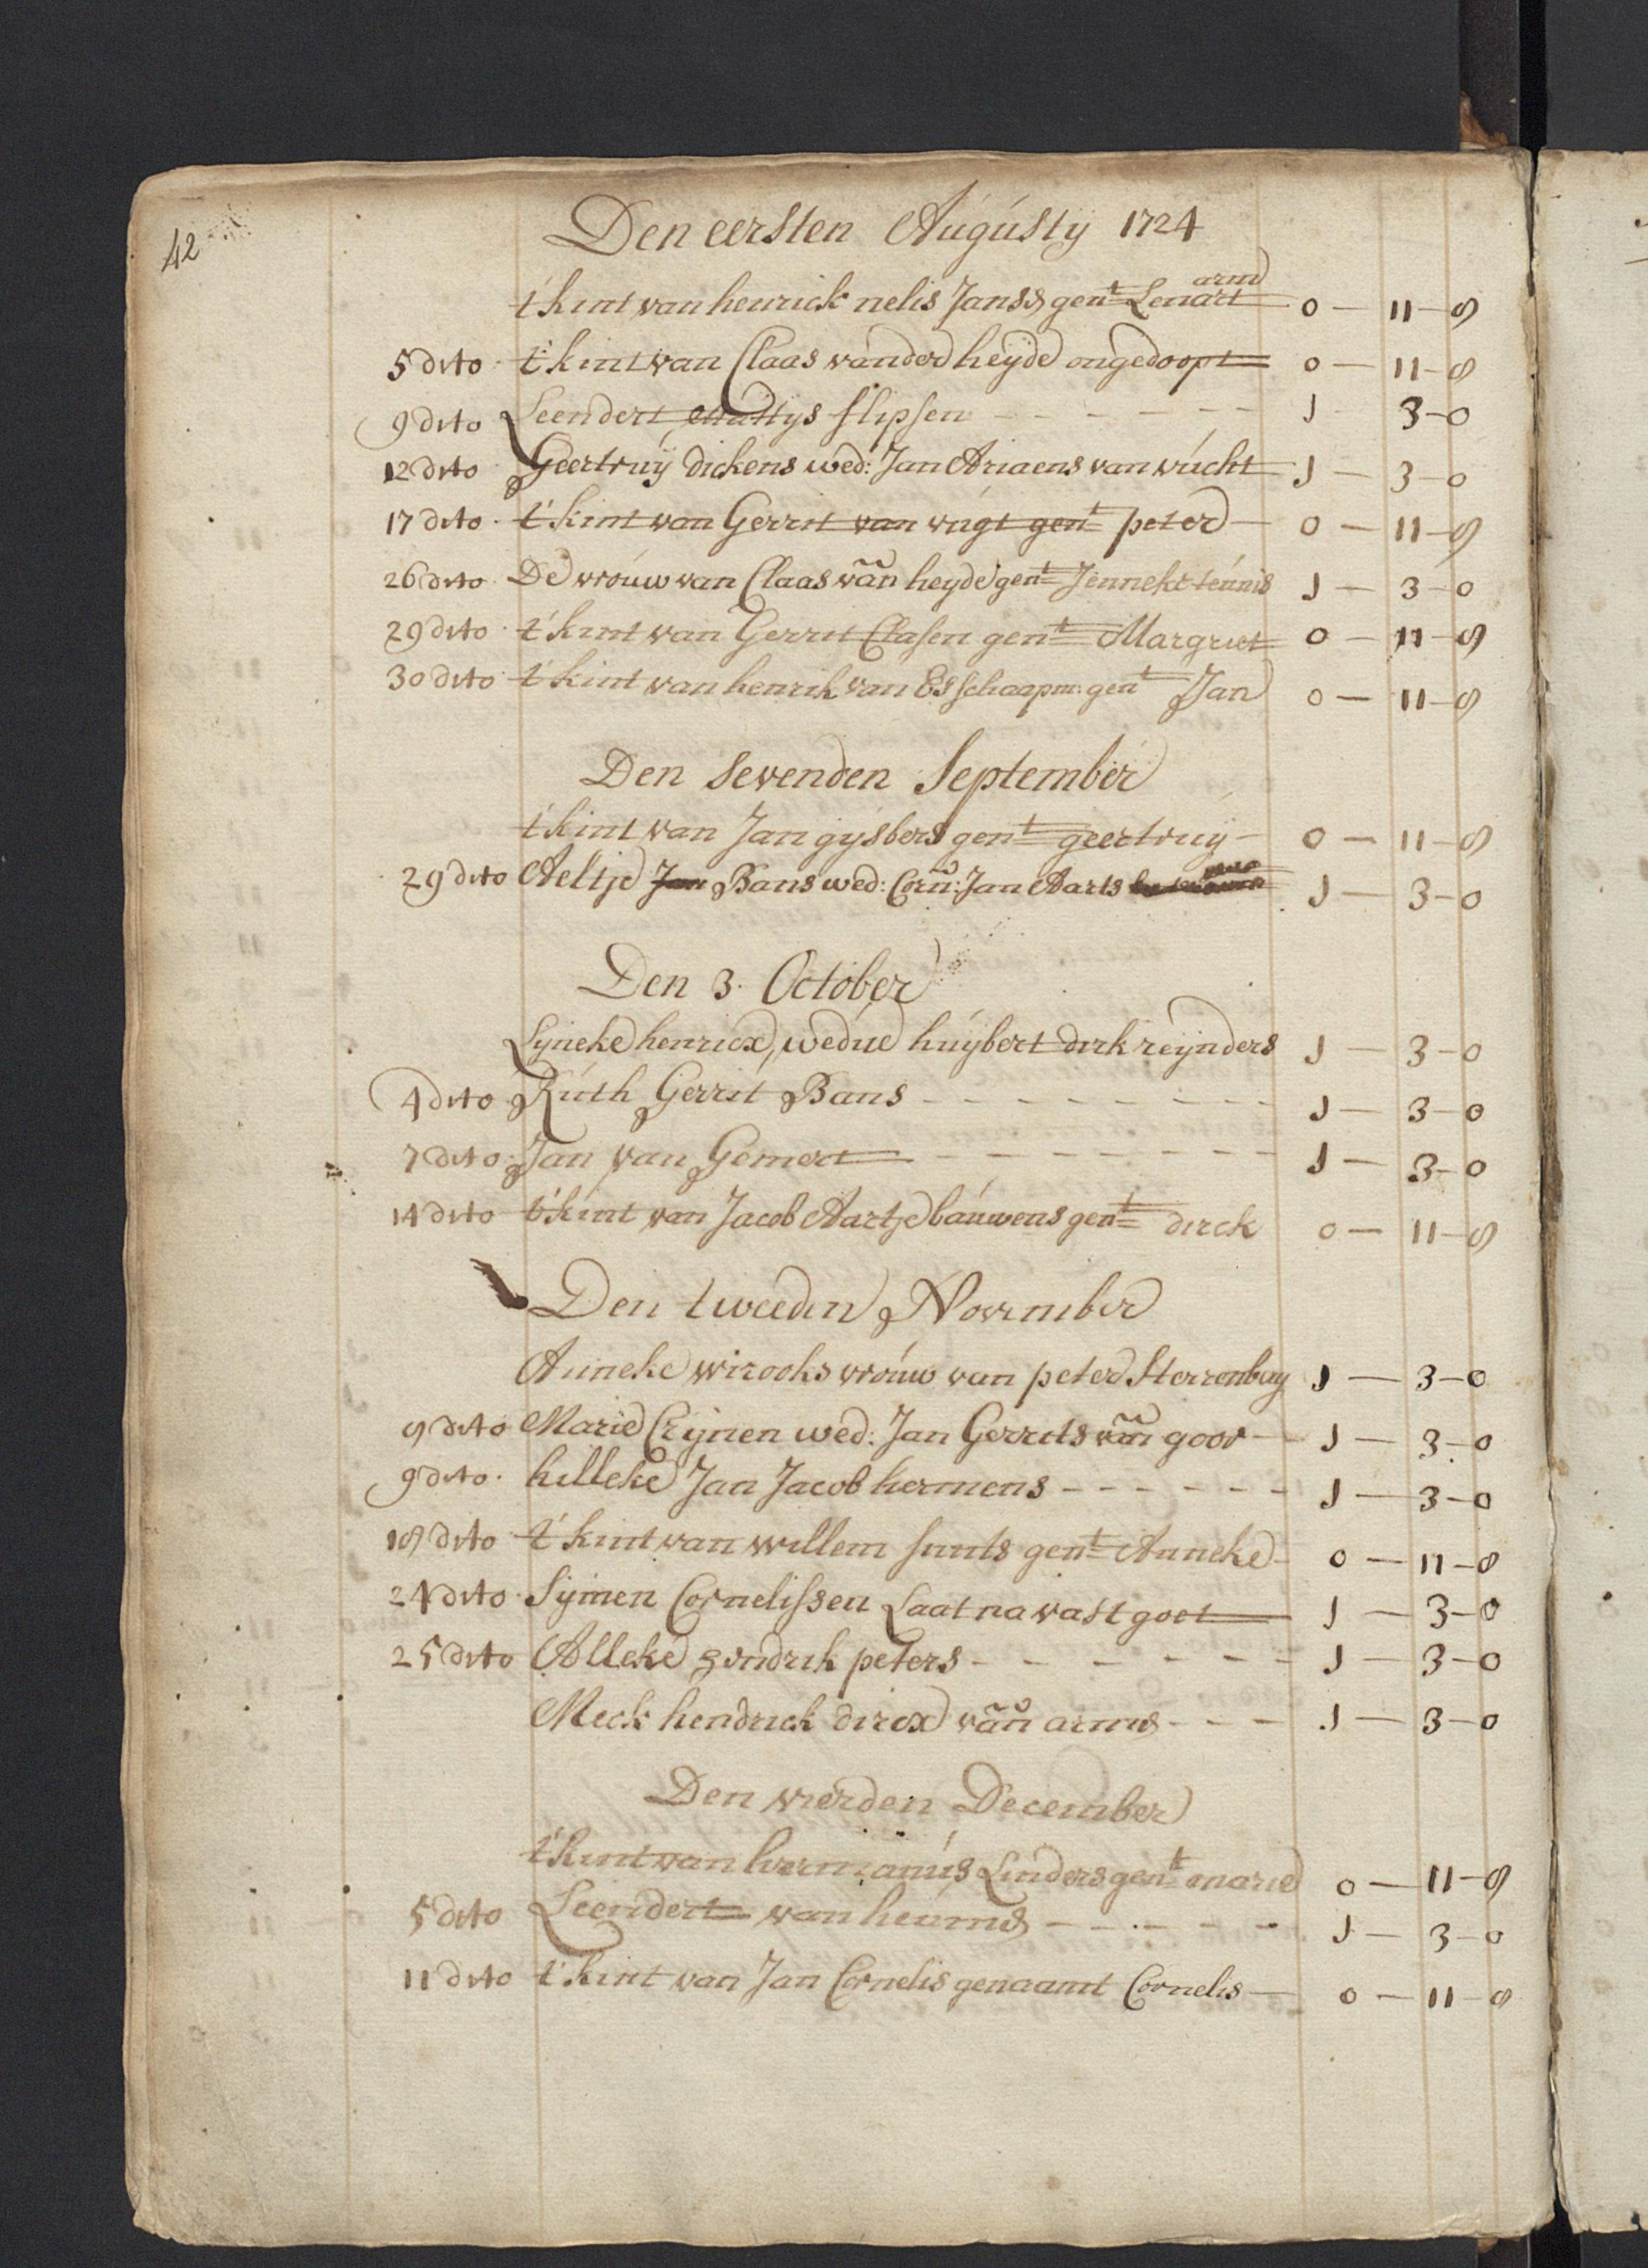 42
Den eersten Augusty 1724
arm
t'kint van henrick nelis Janss gent Lenart 0 — 11 — 8
5 dito t'kint van Claas vander heyde ongedoopt 0 — 11 — 8
9 dito Leendert Mattys flipsen 1 3 — 0
12 dito Geertruy dickens wed: Jan Ariaens van vucht 1 — 3 — 0
17 dito t'kint van Gerrit van vugt gent peter 0 — 11 — 8
26 dito De vrouw van Claas van heyde gent Jenneke teunis 1 — 3 — 0
29 dito t'kint van Gerrit Clasen gent Margriet 0 — 11 — 8
30 dito t'kint van henrik van Es schaapm: gent Jan 0 — 11 — 8
Den sevenden September
t'kint van Jan gysbers gent geertruy 0 — 11 — 8
29 dito Aeltje Jan Bans wed: Corn: Jan Aarts 1 — 3 — 0
Den 3. October
Lyneke henricx, wedue huybert dirk reynders 1 — 3 — 0
4 dito Ruth Gerrit Bans 1 — 3 — 0
7 dito Jan van Gemert 1 — 3 — 0
14 dito t'kint van Jacob Aartje bauwens gent dirck 0 — 11 — 8
Den tweeden November
Anneke wirooks vrouw van peter Sterrenburg 1 — 3 — 0
9 dito Marie Crynen wed: Jan Gerrits van goor 1 — 3 — 0
9 dito hilleke Jan Jacob hermens 1 — 3 — 0
18 dito t'kint van willem smits gent Anneke 0 — 11 — 8
24 dito Symen Cornelissen Laat na vast goet 1 — 3 — 0
25 dito Alleke hendrik peters 1 — 3 — 0
Meck hendrick dircx van arms 1 — 3 — 0
Den vierden December
t'kint van hermanus Linders gent marie 0 — 11 — 8
5 dito Leendert van heums 1 — 3 — 0
11 dito t'kint van Jan Cornelis genaamt Cornelis 0 — 11 — 8